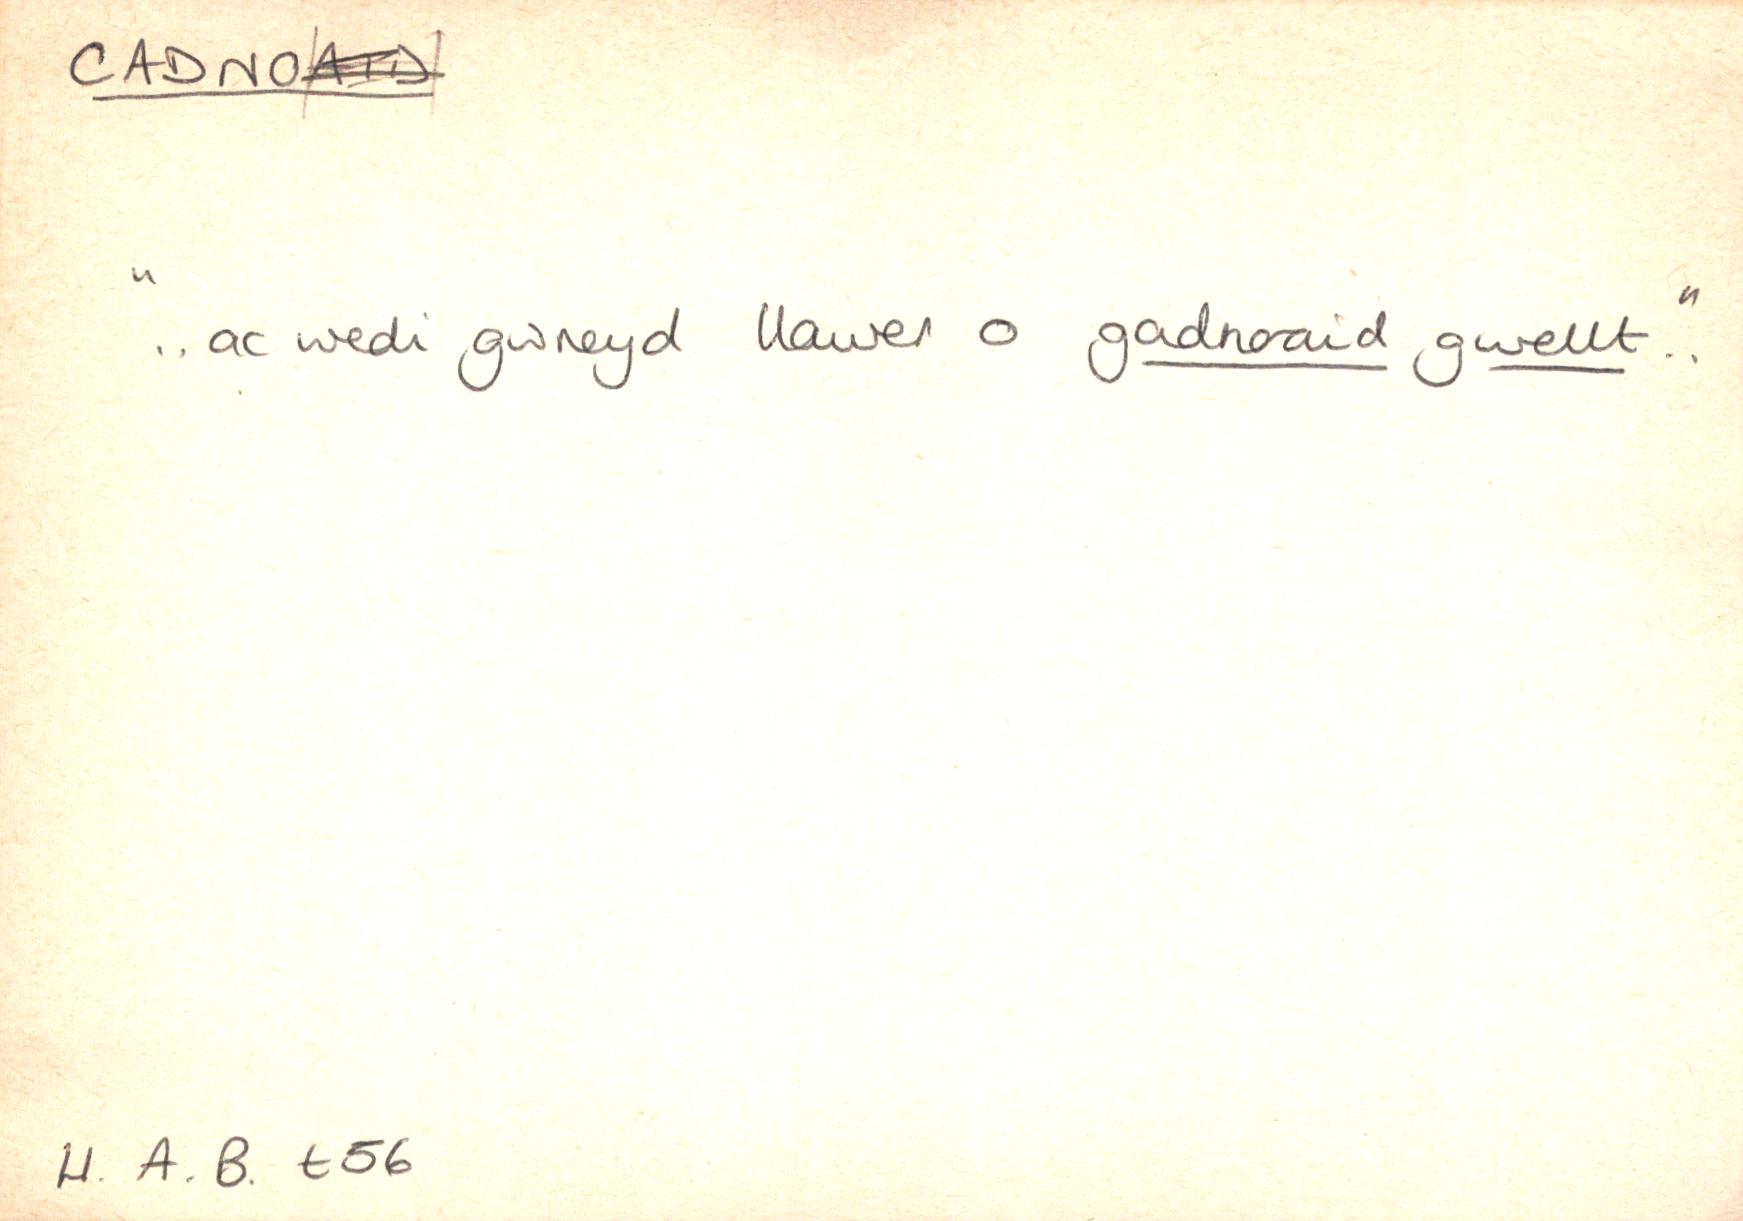 CADNO
".. ac wedi gwneyd llawer o gadnoaid gwellt.."
H. A. B. t56